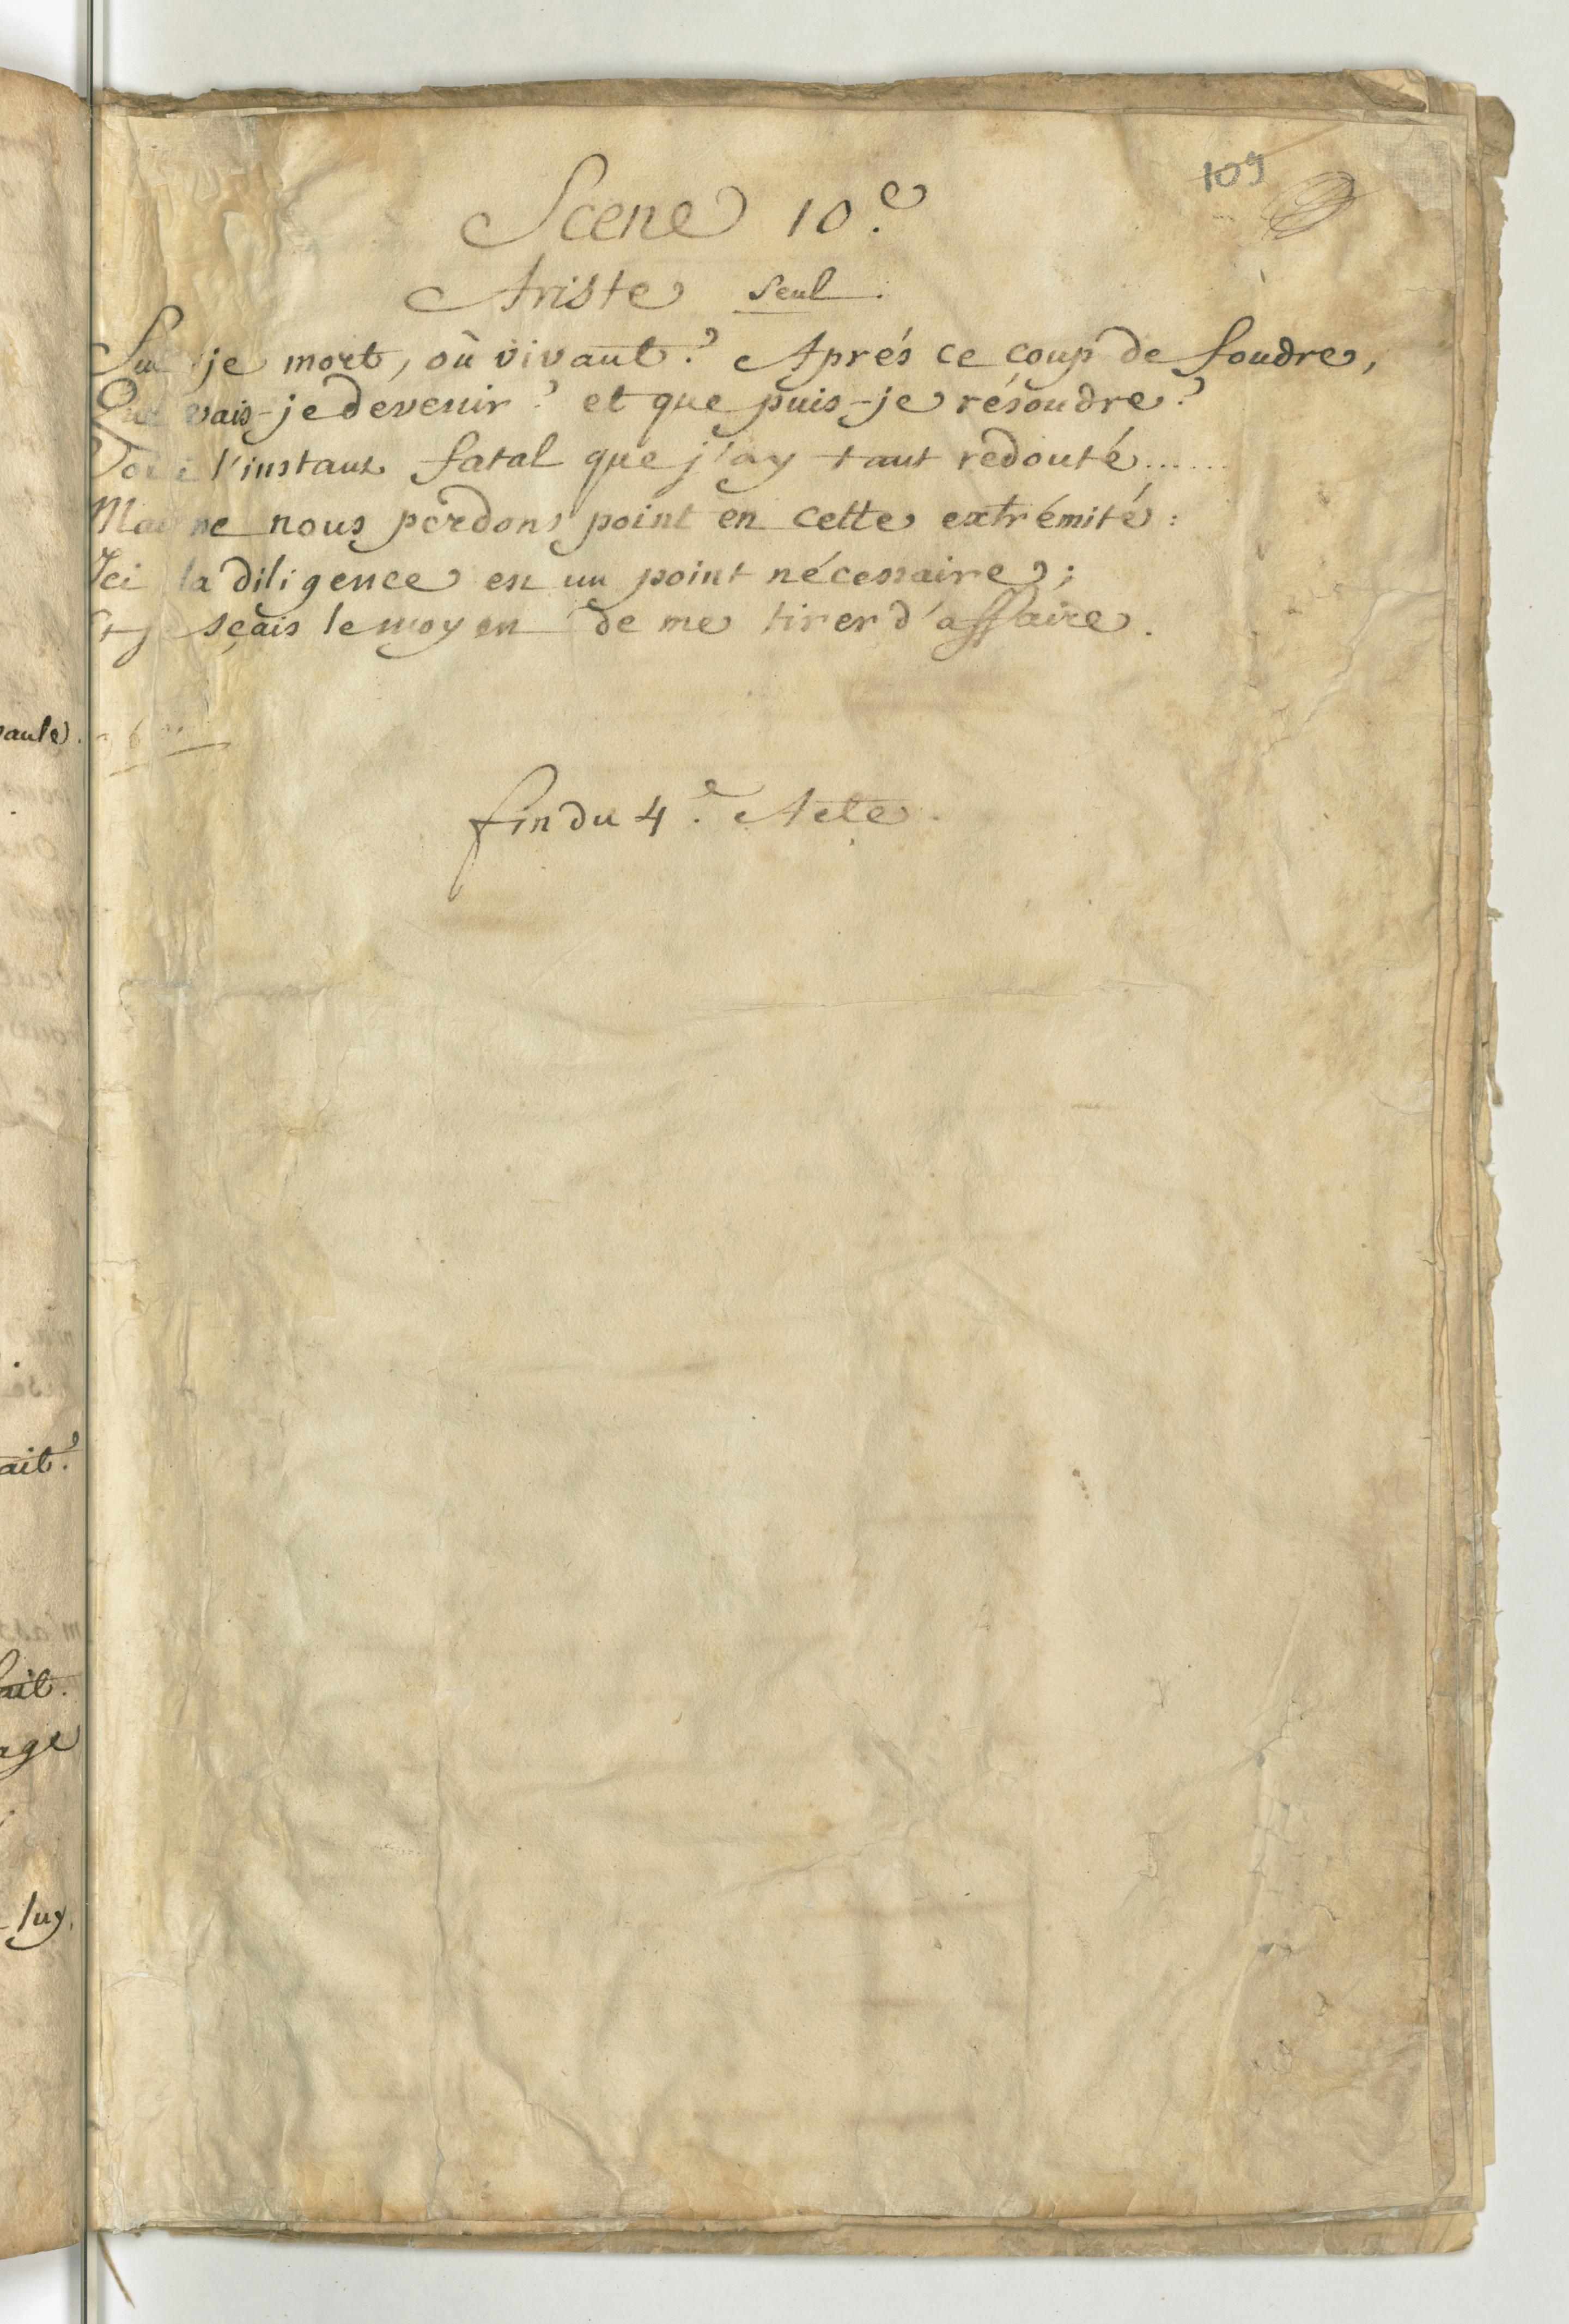 109
Scene 10.e
Ariste seul.
Suis je mort, où vivant? Aprés ce coup de foudre,
Que vais-je devenir? et que puis-je résoudre?
Voici l'instant fatal que j'ay tant redouté......
Mais ne nous perdons point en cette extrémité:
Ici la diligence est un point nécessaire;
Et je sçais le moyen de me tirer d'affaire.
fin du 4.e Acte.
aule).
ait?
fait.
age
luy.